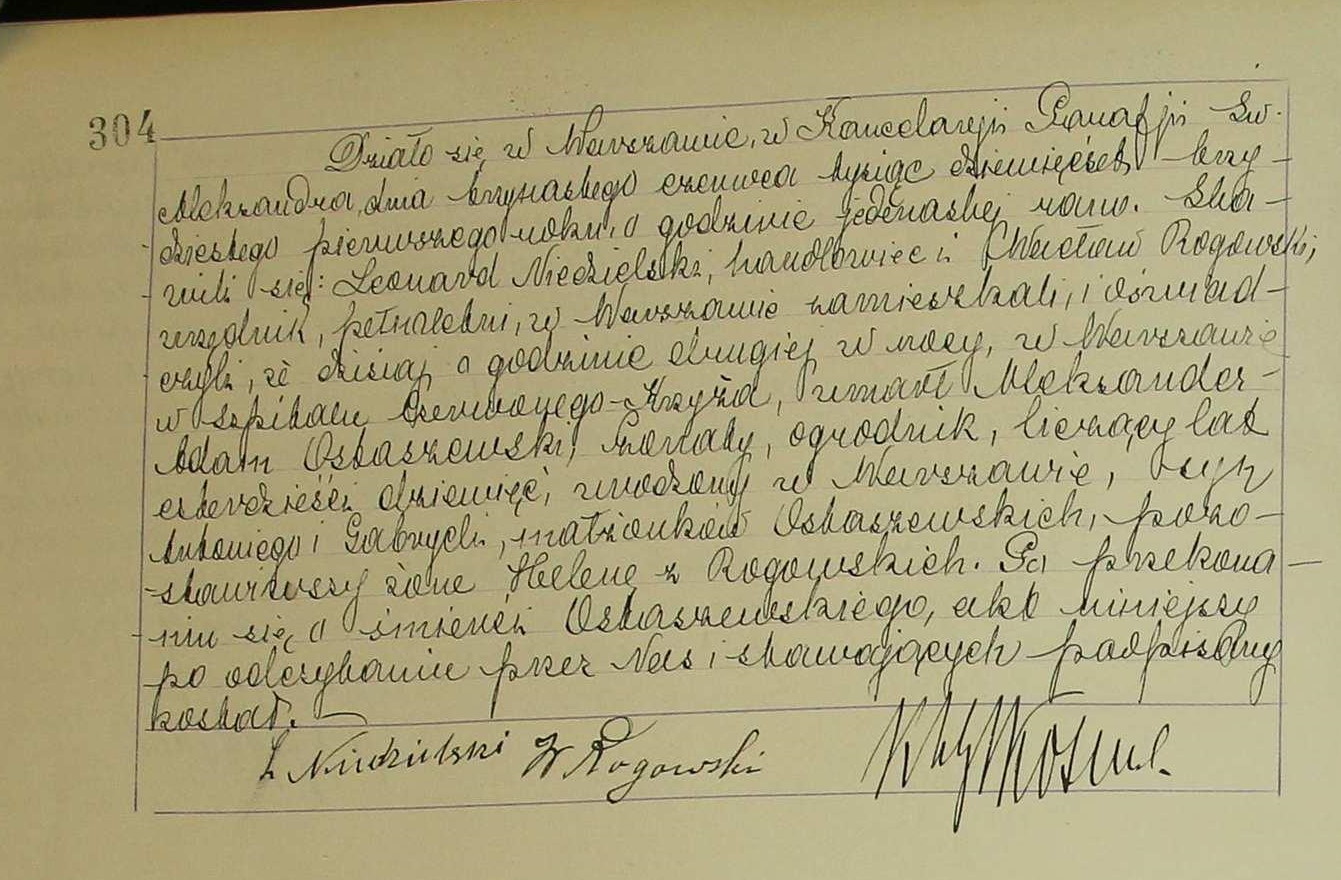 304
Działo się w Warszawie, w Kancelarji Parafji Św.
Aleksandra, dnia trzynastego czerwca tysiąc dziewięćset trzy-
dziestego pierwszego roku, o godzinie jedenastej rano. Sta-
wili się: Leonard Niedzielski, handlowiec i Wacław Rogowski,
urzędnik, pełnoletni, w Warszawie zamieszkali, i oświad-
czyli, że dzisiaj o godzinie drugiej w nocy, w Warszawie
w szpitalu Czerwonego-Krzyża, zmarł Aleksander-
Adam Ostaszewski, żonaty, ogrodnik, liczący lat
czterdzieści dziewięć, urodzony w Warszawie, syn
Antoniego i Gabryeli, małżonków Ostaszewskich, pozo-
stawiwszy żonę Helenę z Rogowskich. Po przekona-
niu się o śmierci Ostaszewskiego, akt niniejszy
po odczytaniu przez Nas i stawających podpisany
został.
L Niedzielski W Rogowski